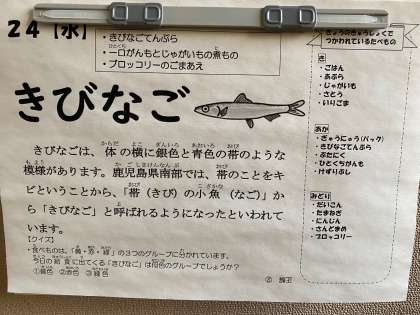 24【水】
・きびなごてんぷら
・一口がんもとじゃがいもの煮もの
・ブロッコリーのごまあえ
きょうのきゅうしょくで
つかわれているたべもの
き
・ごはん
・あぶら
・じゃがいも
・さとう
・いりごま
あか
・ぎゅうにゅう(パック)
・きびなごてんぷら
・ぶたにく
・ひとくちがんも
・けずりぶし
みどり
・だいこん
・たまねぎ
・にんじん
・さんどまめ
・ブロッコリー
きびなご
きびなごは、体の横に銀色と青色の帯のような
模様があります。鹿児島県南部では、帯のことをキ
ビということから、「帯(きび)の小魚(なご)」か
ら「きびなご」と呼ばれるようになったといわれて
います。
【クイズ】
・食べものは、「黄・赤・緑」の3つのグループに分かれています。
今日の給食に出てくる「きびなご」は何色のグループでしょうか?
①黄色 ②赤色 ③緑色